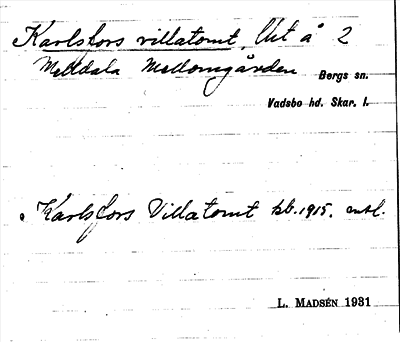 Karlsfors villatomt, Ut å 2
Melldala Mellomgården Bergs sn.
Vadsbo hd. Skar. l.
Karlsfors Villatomt kb. 1915. mtl.
L. MADSÉN 1931